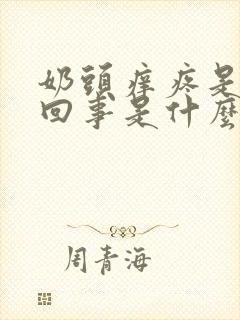 奶頭痒疼是
回事是什麼
周青海